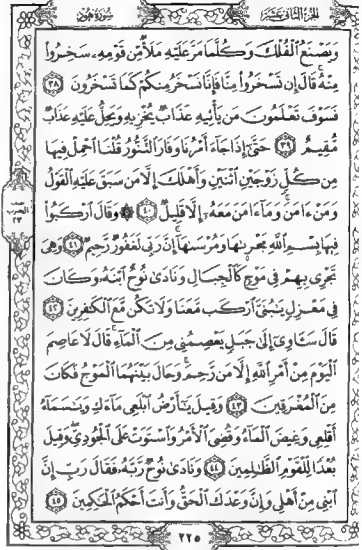 الجزء الثاني عشر
سورة هود
وَيَصْنَعُ ٱلْفُلْكَ وَكُلَّمَا مَرَّ عَلَيْهِ مَلَأٌ مِّن قَوْمِهِۦ سَخِرُوا۟
مِنْهُ قَالَ إِن تَسْخَرُوا۟ مِنَّا فَإِنَّا نَسْخَرُ مِنكُمْ كَمَا تَسْخَرُونَ ٣٨
فَسَوْفَ تَعْلَمُونَ مَن يَأْتِيهِ عَذَابٌ يُخْزِيهِ وَيَحِلُّ عَلَيْهِ عَذَابٌ
مُّقِيمٌ ٣٩ حَتَّىٰٓ إِذَا جَآءَ أَمْرُنَا وَفَارَ ٱلتَّنُّورُ قُلْنَا ٱحْمِلْ فِيهَا
مِن كُلٍّ زَوْجَيْنِ ٱثْنَيْنِ وَأَهْلَكَ إِلَّا مَن سَبَقَ عَلَيْهِ ٱلْقَوْلُ
وَمَنْ ءَامَنَ وَمَآ ءَامَنَ مَعَهُۥٓ إِلَّا قَلِيلٌ ٤٠ ۞ وَقَالَ ٱرْكَبُوا۟
فِيهَا بِسْمِ ٱللَّهِ مَجْر۪ىٰهَا وَمُرْسَىٰهَآ إِنَّ رَبِّى لَغَفُورٌ رَّحِيمٌ ٤١ وَهِىَ
تَجْرِى بِهِمْ فِى مَوْجٍ كَٱلْجِبَالِ وَنَادَىٰ نُوحٌ ٱبْنَهُۥ وَكَانَ
فِى مَعْزِلٍ يَٰبُنَىَّ ٱرْكَب مَّعَنَا وَلَا تَكُن مَّعَ ٱلْكَٰفِرِينَ ٤٢
قَالَ سَـَٔاوِىٓ إِلَىٰ جَبَلٍ يَعْصِمُنِى مِنَ ٱلْمَآءِ قَالَ لَا عَاصِمَ
ٱلْيَوْمَ مِنْ أَمْرِ ٱللَّهِ إِلَّا مَن رَّحِمَ وَحَالَ بَيْنَهُمَا ٱلْمَوْجُ فَكَانَ
مِنَ ٱلْمُغْرَقِينَ ٤٣ وَقِيلَ يَٰٓأَرْضُ ٱبْلَعِى مَآءَكِ وَيَٰسَمَآءُ
أَقْلِعِى وَغِيضَ ٱلْمَآءُ وَقُضِىَ ٱلْأَمْرُ وَٱسْتَوَتْ عَلَى ٱلْجُودِىِّ وَقِيلَ
بُعْدًا لِّلْقَوْمِ ٱلظَّٰلِمِينَ ٤٤ وَنَادَىٰ نُوحٌ رَّبَّهُۥ فَقَالَ رَبِّ إِنَّ
ٱبْنِى مِنْ أَهْلِى وَإِنَّ وَعْدَكَ ٱلْحَقُّ وَأَنتَ أَحْكَمُ ٱلْحَٰكِمِينَ ٤٥
٢٢٥